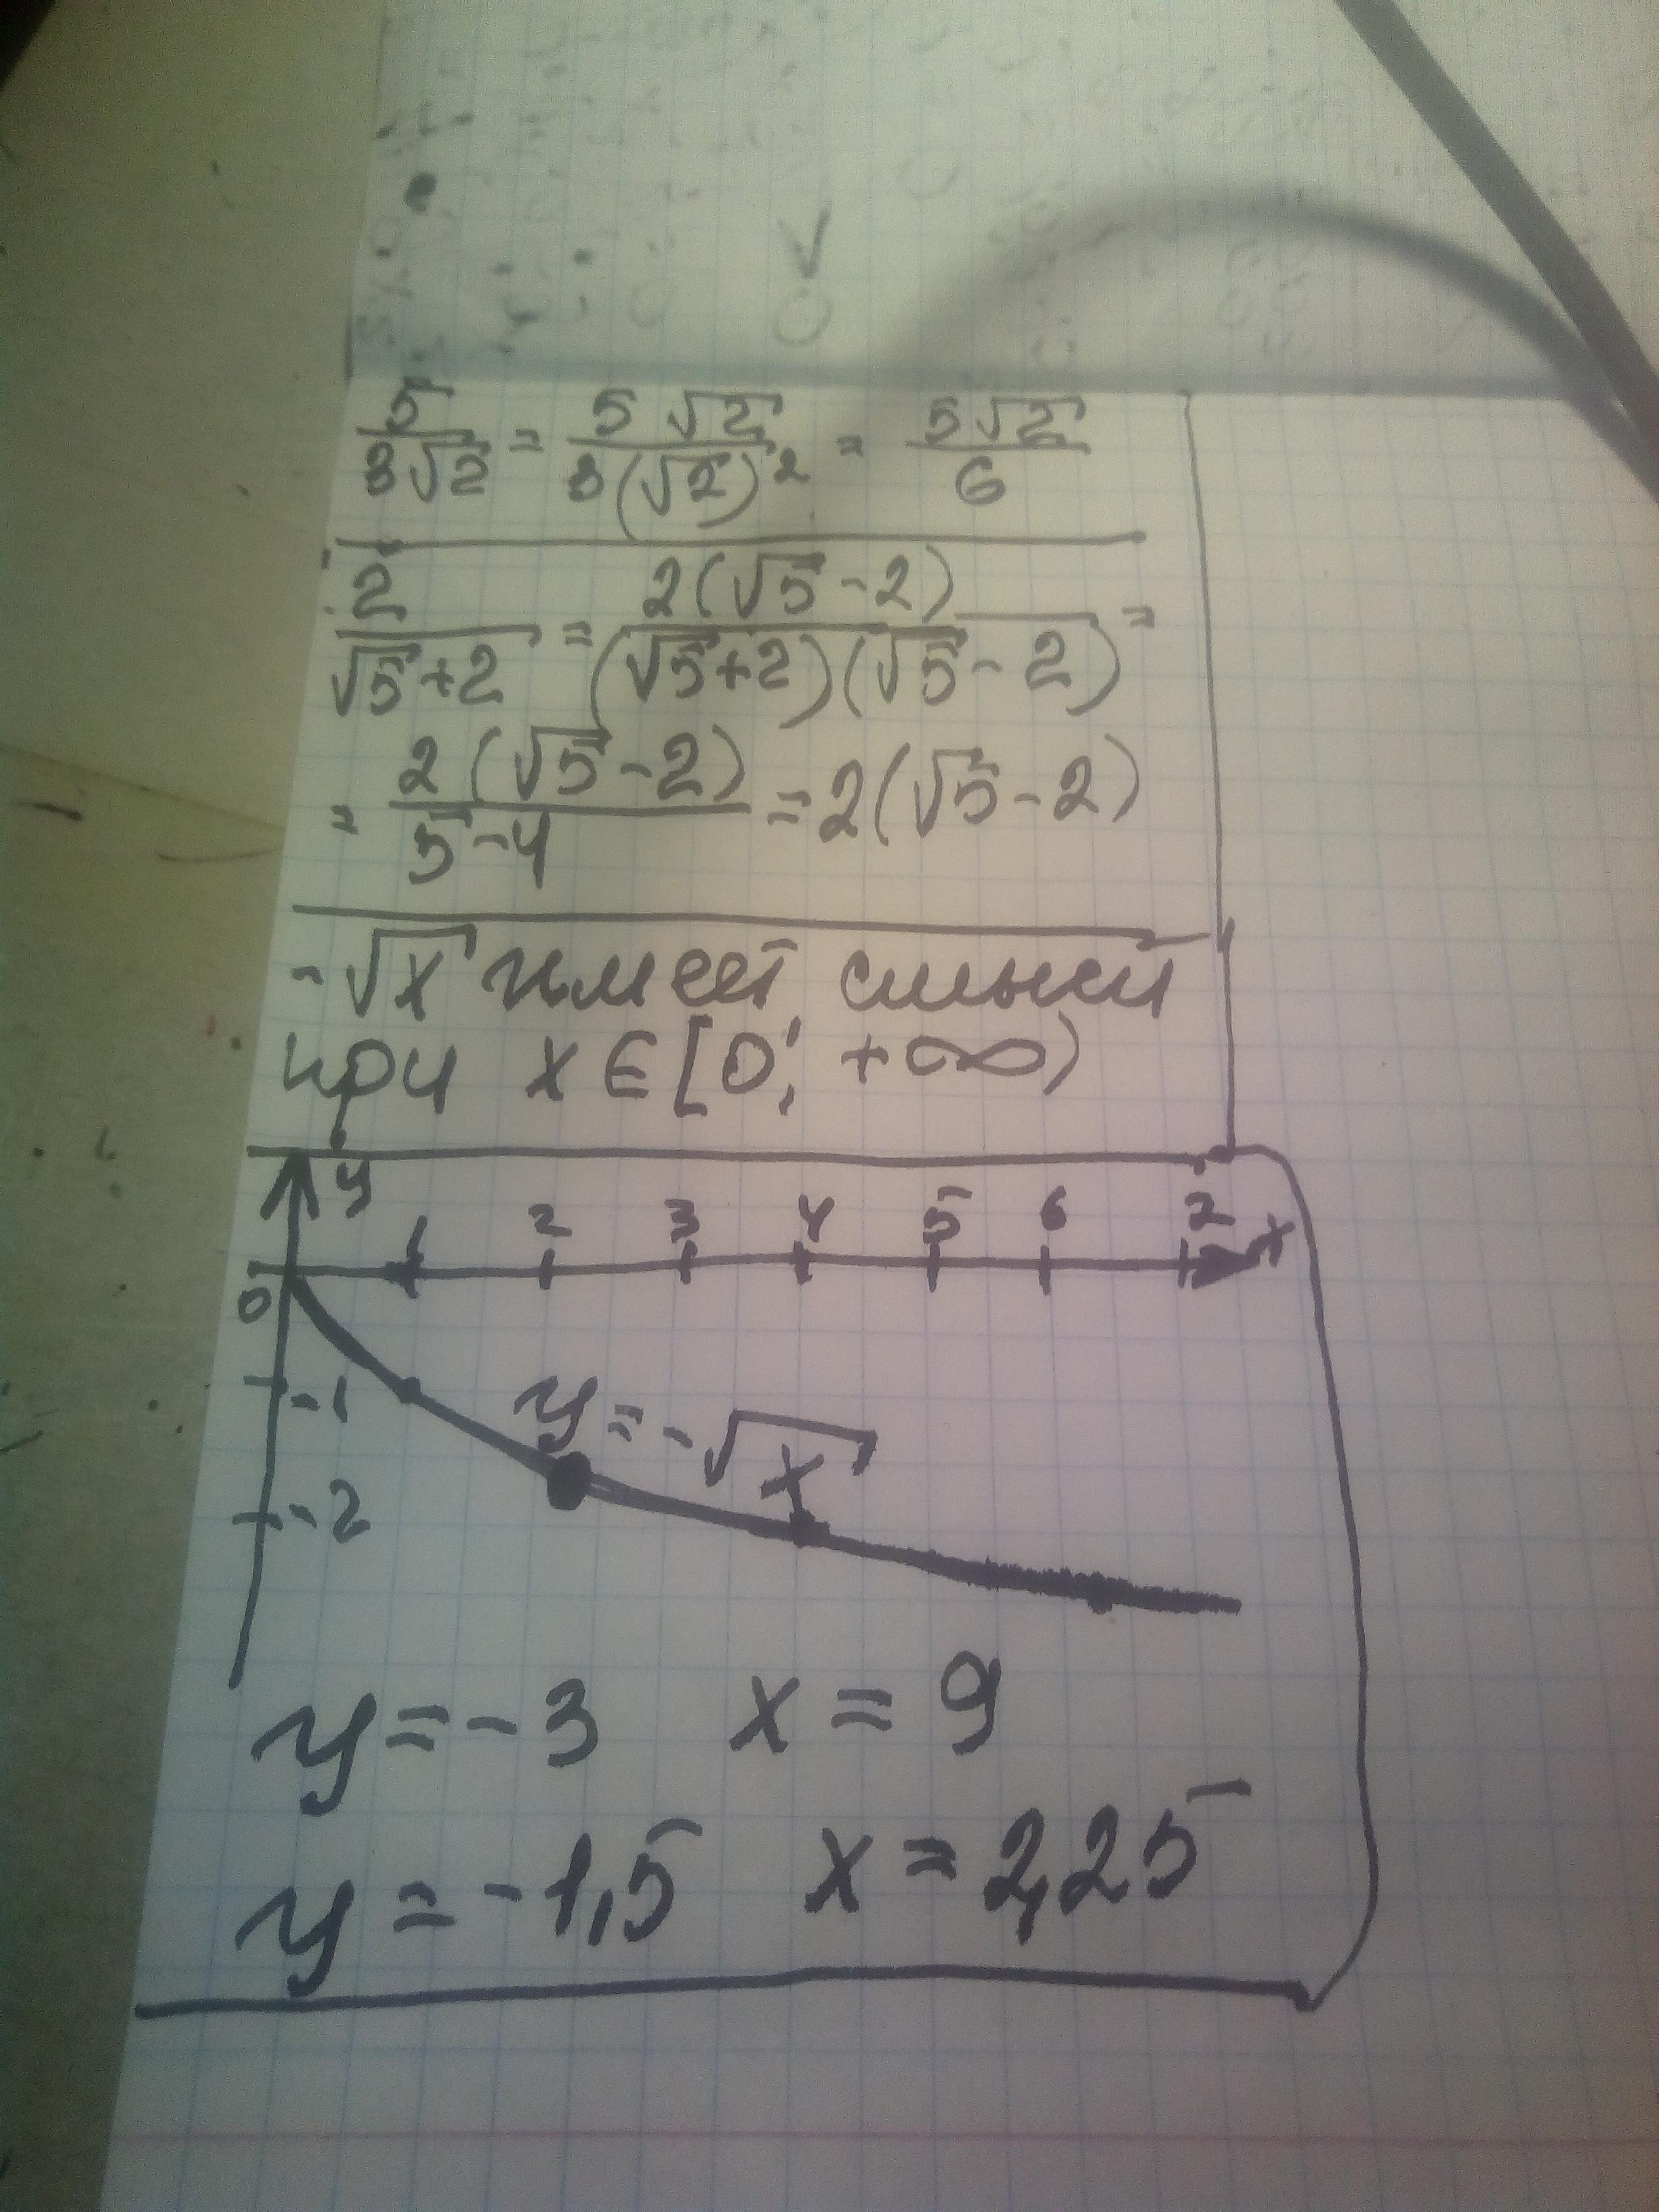 5/(3√2) = 5√2/(3(√2)²) = 5√2/6
2/(√5+2) = 2(√5-2)/((√5+2)(√5-2)) =
= 2(√5-2)/(5-4) = 2(√5-2)
-√x имеет смысл
при x∈[0; +∞)
y
1 2 3 4 5 6 7 x
0
-1
y=-√x
-2
y=-3 x=9
y=-1,5 x=2,25